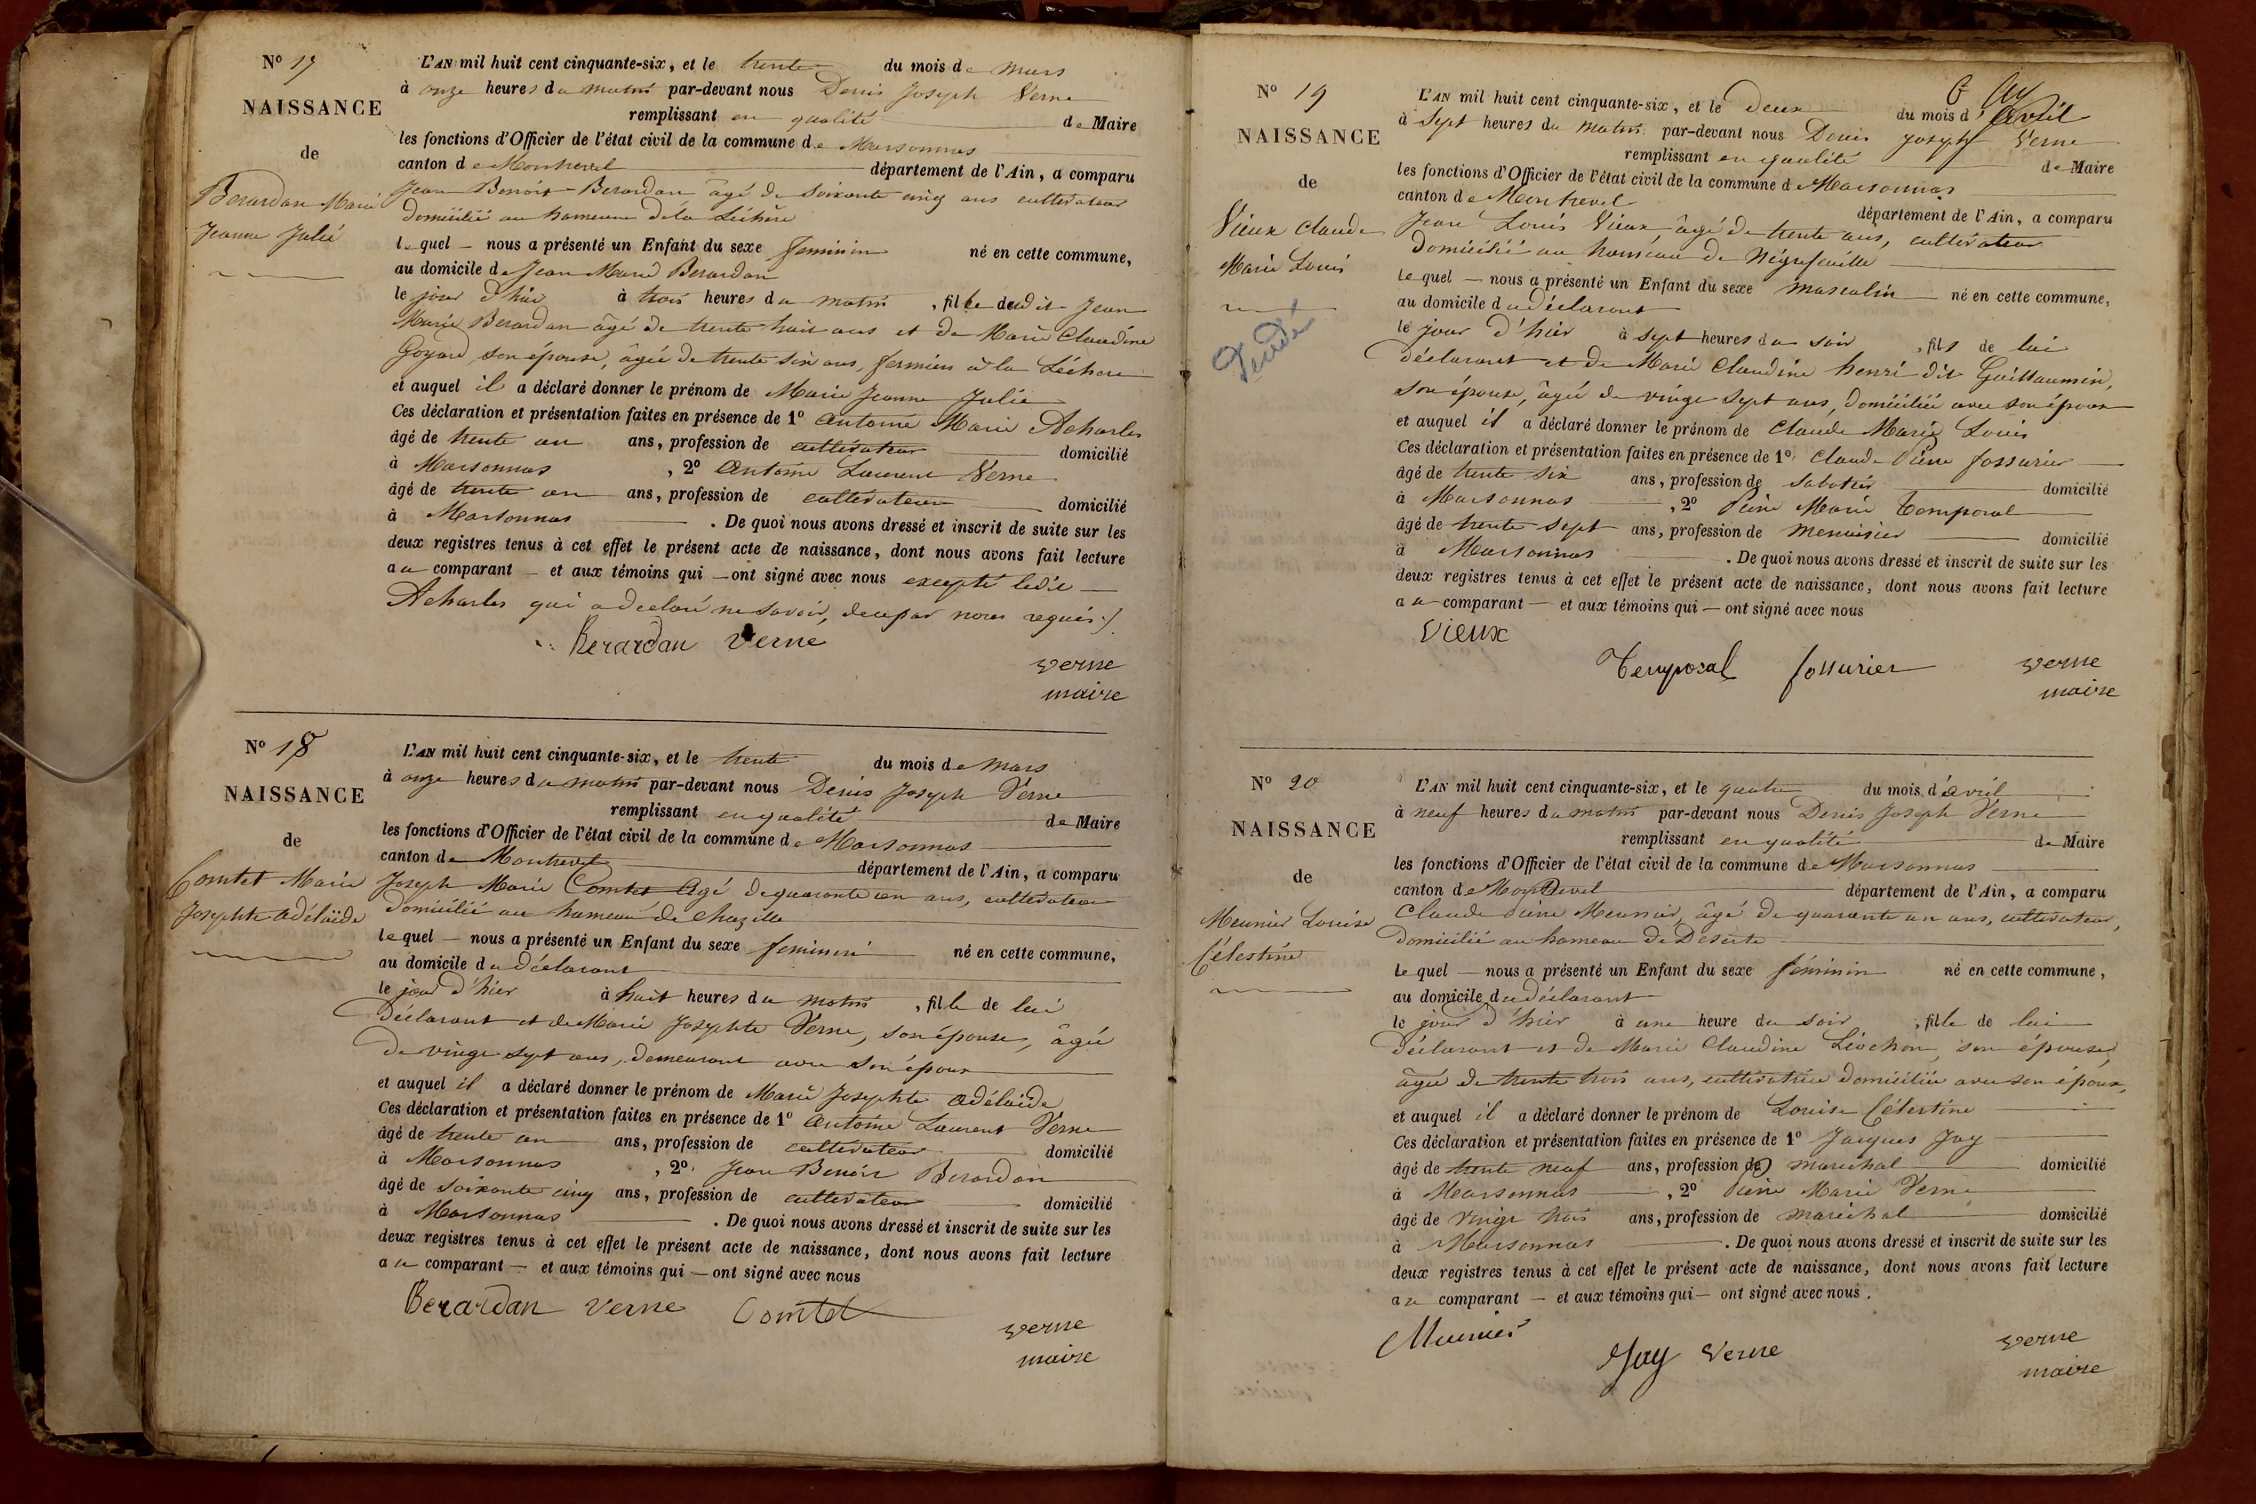 Nº 17
NAISSANCE
de
Berardan Marie
Jeanne Julie
L'AN mil huit cent cinquante-six, et le trente du mois de mars
à onze heures du matin par-devant nous Denis Joseph Verne
remplissant en qualité de Maire
les fonctions d'Officier de l'état civil de la commune de Marsonnas
canton de Montrevel département de l'Ain, a comparu
Jean Benoit Berardan âgé de soixante cinq ans cultivateur
domicilié au hameau de la Léchère
lequel nous a présenté un Enfant du sexe féminin né en cette commune,
au domicile de Jean Marie Berardan
le jour d'hier à trois heures du matin, fille dudit Jean
Marie Berardan âgé de trente huit ans et de Marie Claudine
Goyard son épouse, âgée de trente six ans, fermiers à la Léchère
et auquel il a déclaré donner le prénom de Marie Jeanne Julie
Ces déclaration et présentation faites en présence de 1º Antoine Marie Acharles
âgé de trente un ans, profession de cultivateur domicilié
à Marsonnas, 2º Antoine Laurent Verne
âgé de trente un ans, profession de cultivateur domicilié
à Marsonnas. De quoi nous avons dressé et inscrit de suite sur les
deux registres tenus à cet effet le présent acte de naissance, dont nous avons fait lecture
au comparant et aux témoins qui ont signé avec nous excepté ledit
Acharles qui a déclaré ne savoir, de ce par nous requis
Berardan Verne
verne
maire
Nº 18
NAISSANCE
de
Comtet Marie
Josephte Adélaïde
L'AN mil huit cent cinquante-six, et le trente du mois de mars
à onze heures du matin par-devant nous Denis Joseph Verne
remplissant en qualité de Maire
les fonctions d'Officier de l'état civil de la commune de Marsonnas
canton de Montrevel département de l'Ain, a comparu
Joseph Marie Comtet âgé de quarante un ans, cultivateur
domicilié au hameau de Chazelle
lequel nous a présenté un Enfant du sexe féminin né en cette commune,
au domicile du déclarant
le jour d'hier à huit heures du matin, fille de lui
déclarant et de Marie Josephte Verne, son épouse, âgée
de vingt sept ans, demeurant avec son époux
et auquel il a déclaré donner le prénom de Marie Josephte Adélaïde
Ces déclaration et présentation faites en présence de 1º Antoine Laurent Verne
âgé de trente un ans, profession de cultivateur domicilié
à Marsonnas, 2º Jean Benoit Berardan
âgé de soixante cinq ans, profession de cultivateur domicilié
à Marsonnas. De quoi nous avons dressé et inscrit de suite sur les
deux registres tenus à cet effet le présent acte de naissance, dont nous avons fait lecture
au comparant et aux témoins qui ont signé avec nous
Berardan verne Comtet
verne
maire
Nº 19
NAISSANCE
de
Vieux Claude
Marie Louis
L'AN mil huit cent cinquante-six, et le deux du mois d'avril
à sept heures du matin par-devant nous Denis Joseph Verne
remplissant en qualité de Maire
les fonctions d'Officier de l'état civil de la commune de Marsonnas
canton de Montrevel département de l'Ain, a comparu
Jean Louis Vieux, âgé de trente ans, cultivateur
domicilié au hameau de Négrefeuille
lequel nous a présenté un Enfant du sexe masculin né en cette commune,
au domicile du déclarant
le jour d'hier à sept heures du soir, fils de lui
déclarant et de Marie Claudine henri dit Guillaumin,
son épouse, âgée de vingt sept ans, domiciliée avec son époux
et auquel il a déclaré donner le prénom de Claude Marie Louis
Ces déclaration et présentation faites en présence de 1º Claude Pierre fossurier
âgé de trente six ans, profession de sabotier domicilié
à Marsonnas, 2º Pierre Marie Temporal
âgé de trente sept ans, profession de menuisier domicilié
à Marsonnas. De quoi nous avons dressé et inscrit de suite sur les
deux registres tenus à cet effet le présent acte de naissance, dont nous avons fait lecture
au comparant et aux témoins qui ont signé avec nous
Vieux
Temporal fossurier verne
maire
Nº 20
NAISSANCE
de
Meunier Louise
Célestine
L'AN mil huit cent cinquante-six, et le quatre du mois d'avril
à neuf heures du matin par-devant nous Denis Joseph Verne
remplissant en qualité de Maire
les fonctions d'Officier de l'état civil de la commune de Marsonnas
canton de Montrevel département de l'Ain, a comparu
Claude Pierre Meunier, âgé de quarante un ans, cultivateur,
domicilié au hameau de Déserte
lequel nous a présenté un Enfant du sexe féminin né en cette commune,
au domicile du déclarant
le jour d'hier à une heure du soir, fille de lui
déclarant et de Marie Claudine Léochon, son épouse,
âgée de trente trois ans, cultivatrice domiciliée avec son époux,
et auquel il a déclaré donner le prénom de Louise Célestine
Ces déclaration et présentation faites en présence de 1º Jacques Jay
âgé de trente neuf ans, profession de maréchal domicilié
à Marsonnas, 2º Pierre Marie Verne
âgé de vingt trois ans, profession de maréchal domicilié
à Marsonnas. De quoi nous avons dressé et inscrit de suite sur les
deux registres tenus à cet effet le présent acte de naissance, dont nous avons fait lecture
au comparant et aux témoins qui ont signé avec nous.
Meunier
Jay Verne
verne
maire